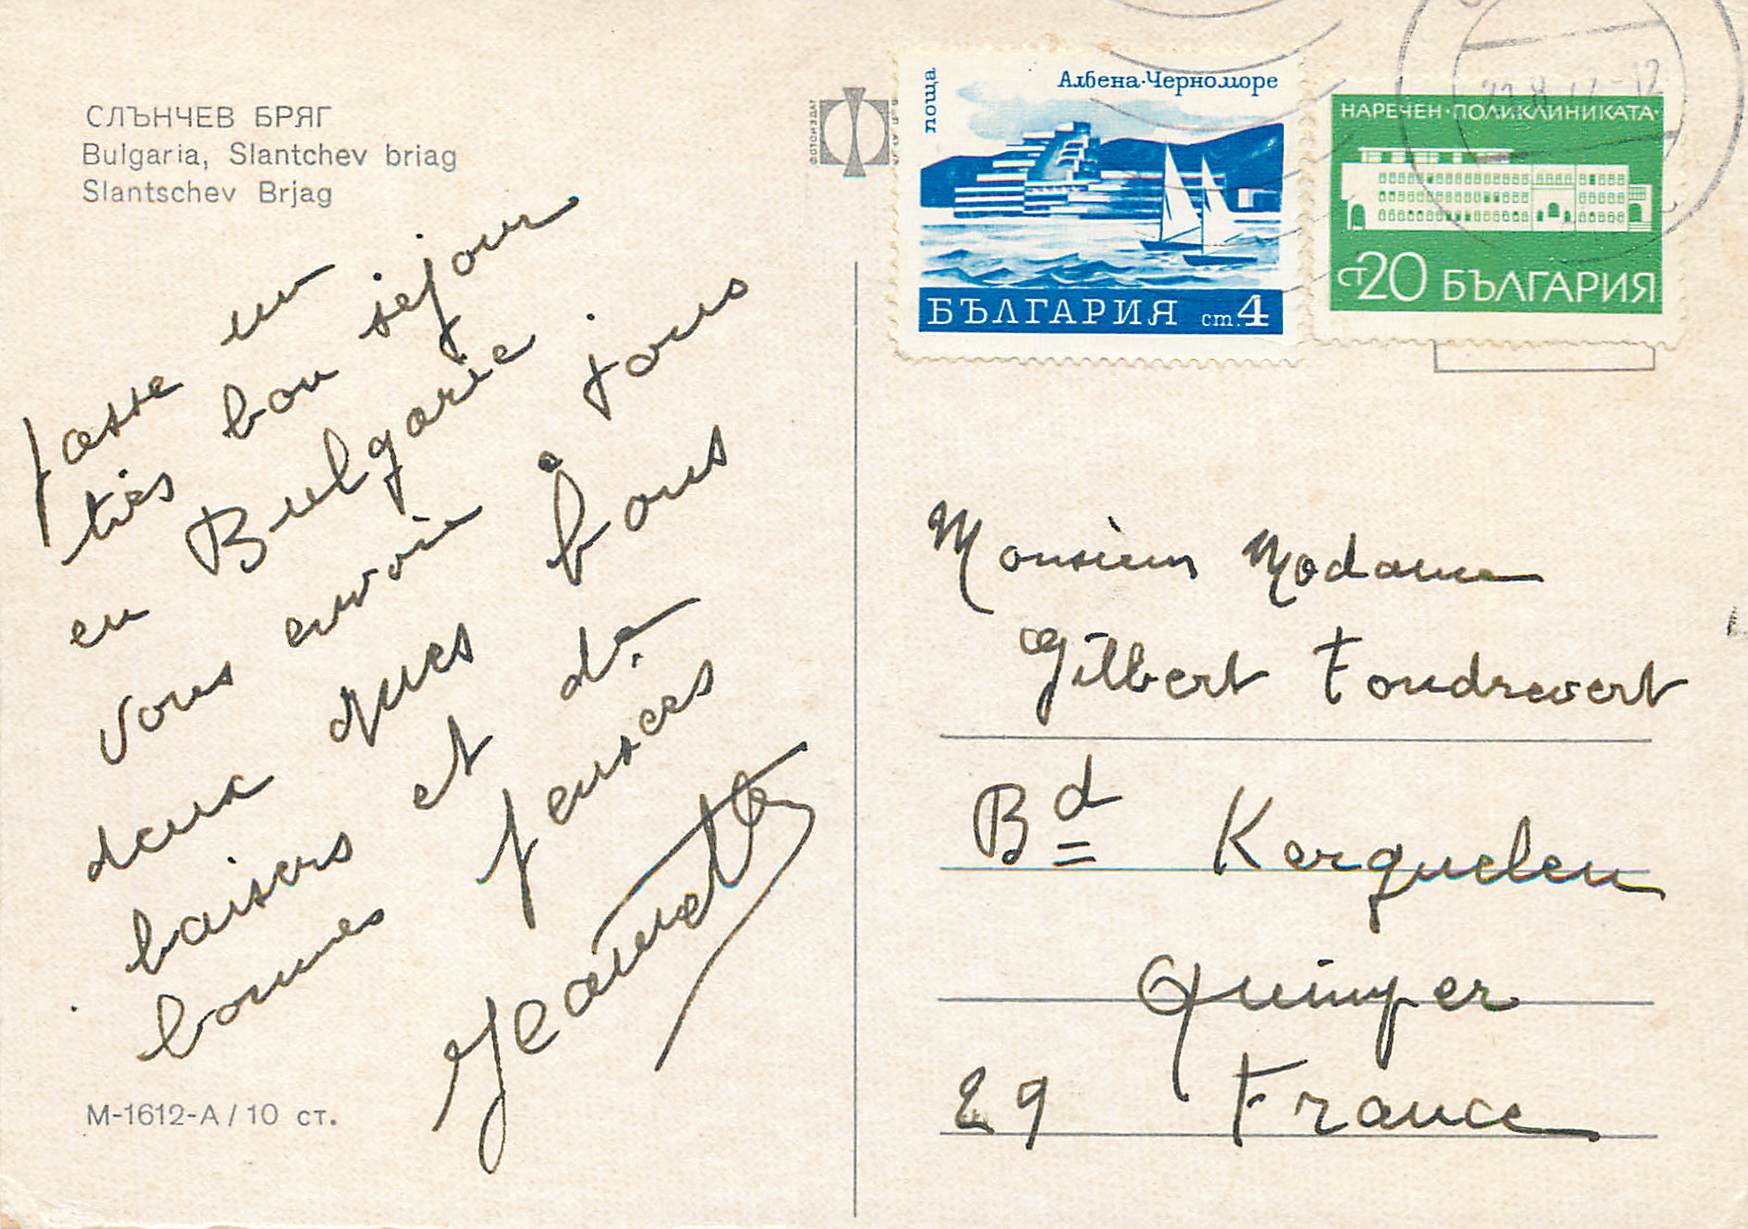 СЛЪНЧЕВ БРЯГ
Bulgaria, Slantchev briag
Slantschev Brjag
passe un
très bon séjour
en Bulgarie
vous envoie à tous
deux ques bons
baisers et de
bonnes pensées
Jeannette
М-1612-А / 10 ст.
ФОТОИЗДАТ
поща
Албена·Черноморе
БЪЛГАРИЯ ст. 4
НАРЕЧЕН·ПОЛИКЛИНИКАТА·
ст 20 БЪЛГАРИЯ
Monsieur Madame
Gilbert Foudrevert
Bd Kerguelen
Quimper
29 France